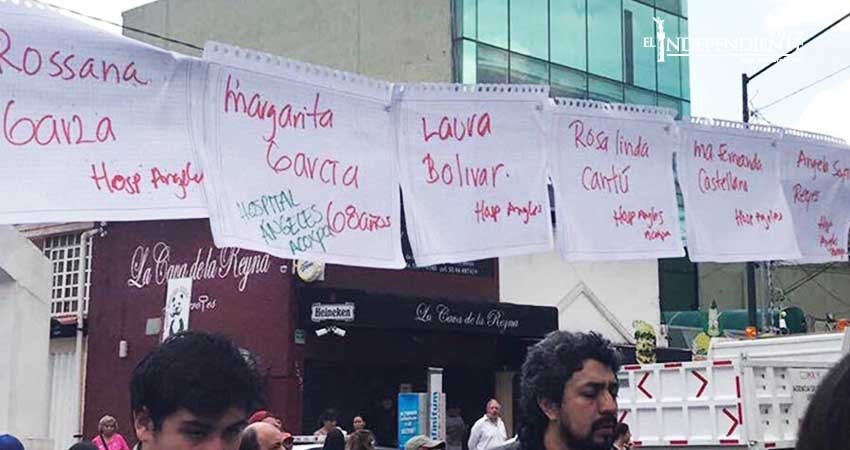 El Independiente
Rossana
Garza
Hosp Angeles
Margarita
García
HOSPITAL
ÁNGELES
ACOXPA
68 años
Laura
Bolívar
Hosp Angles
Rosa linda
Cantú
Hosp Angles
Acoxpa
Ma Fernanda
Castellano
Hosp Angeles
Reyes
Hosp
Angeles
La Cava de la Reyna
Heineken
La Cava de la Reyna